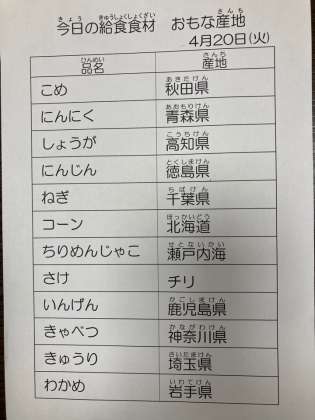 今日の給食食材 おもな産地
4月20日(火)
品名 産地
こめ 秋田県
にんにく 青森県
しょうが 高知県
にんじん 徳島県
ねぎ 千葉県
コーン 北海道
ちりめんじゃこ 瀬戸内海
さけ チリ
いんげん 鹿児島県
きゃべつ 神奈川県
きゅうり 埼玉県
わかめ 岩手県